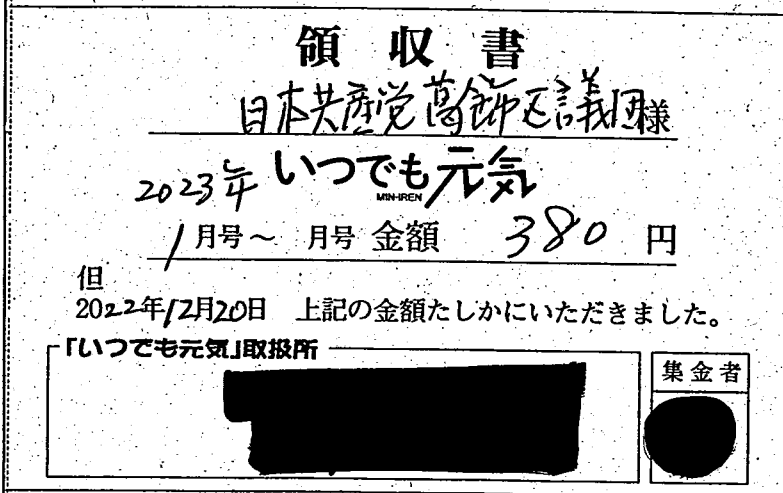 領収書
日本共産党葛飾区議団様
2023年 いつでも元気
MIN-IREN
1月号～ 月号 金額 380 円
但
2022年12月20日 上記の金額たしかにいただきました。
「いつでも元気」取扱所
集金者